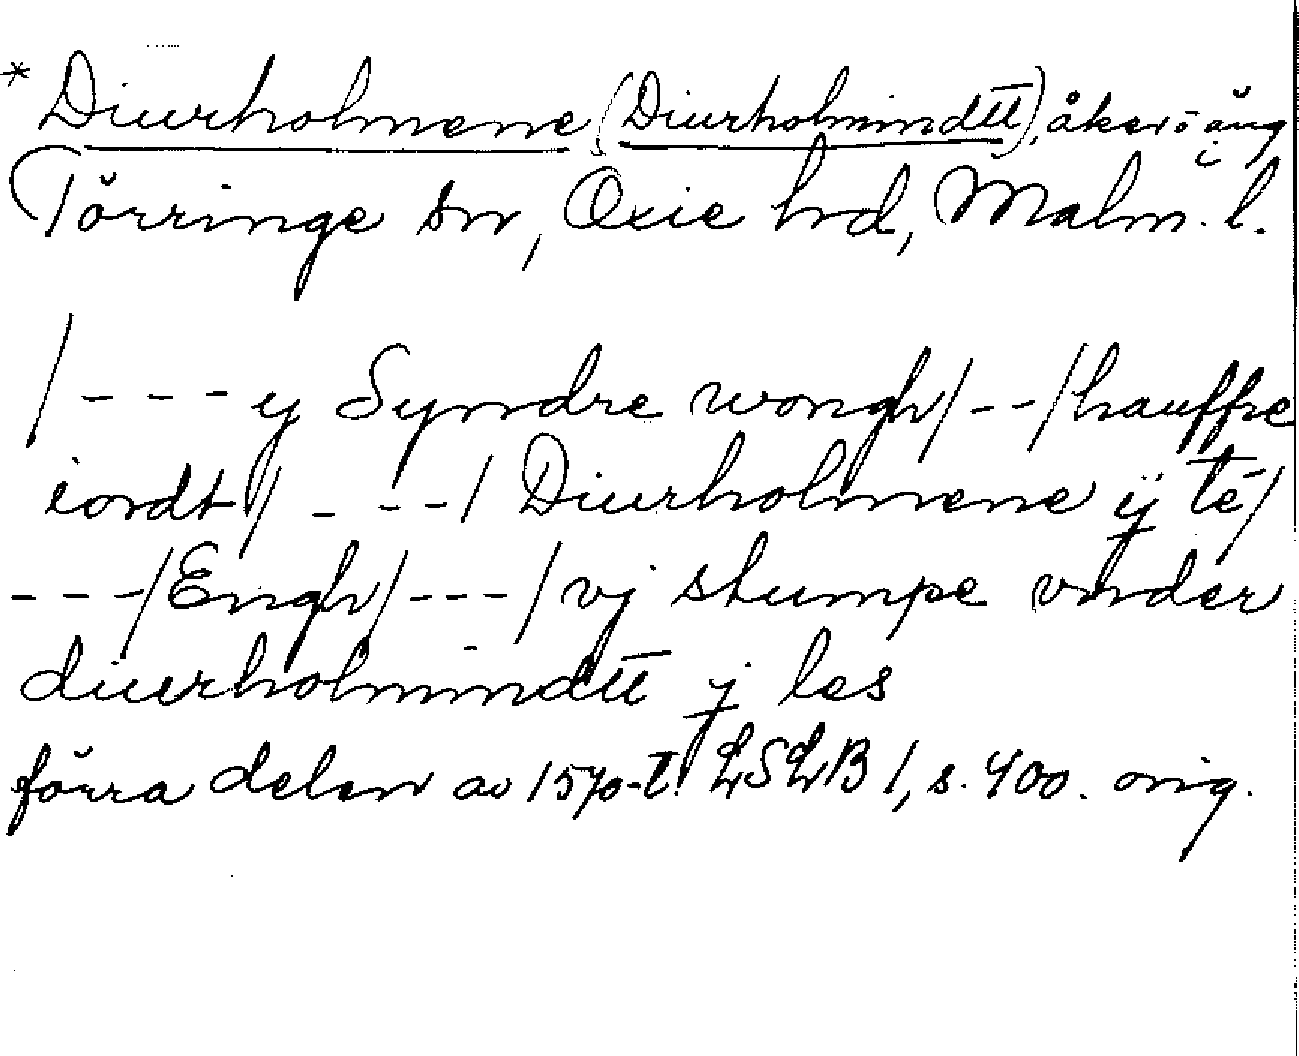 * Diurholmene (Diurholmindtt) åker o äng i
Törringe sn, Oxie hrd, Malm. l.
/ - - - y Syndre wongh / - - / hauffre
iordt / - - - / Diurholmene ÿ te /
- - - / Engh / - - - / vj stumpe vnder
diurholmindtt j les
förra delen av 1570-t. LSLB 1, s. 400. orig.